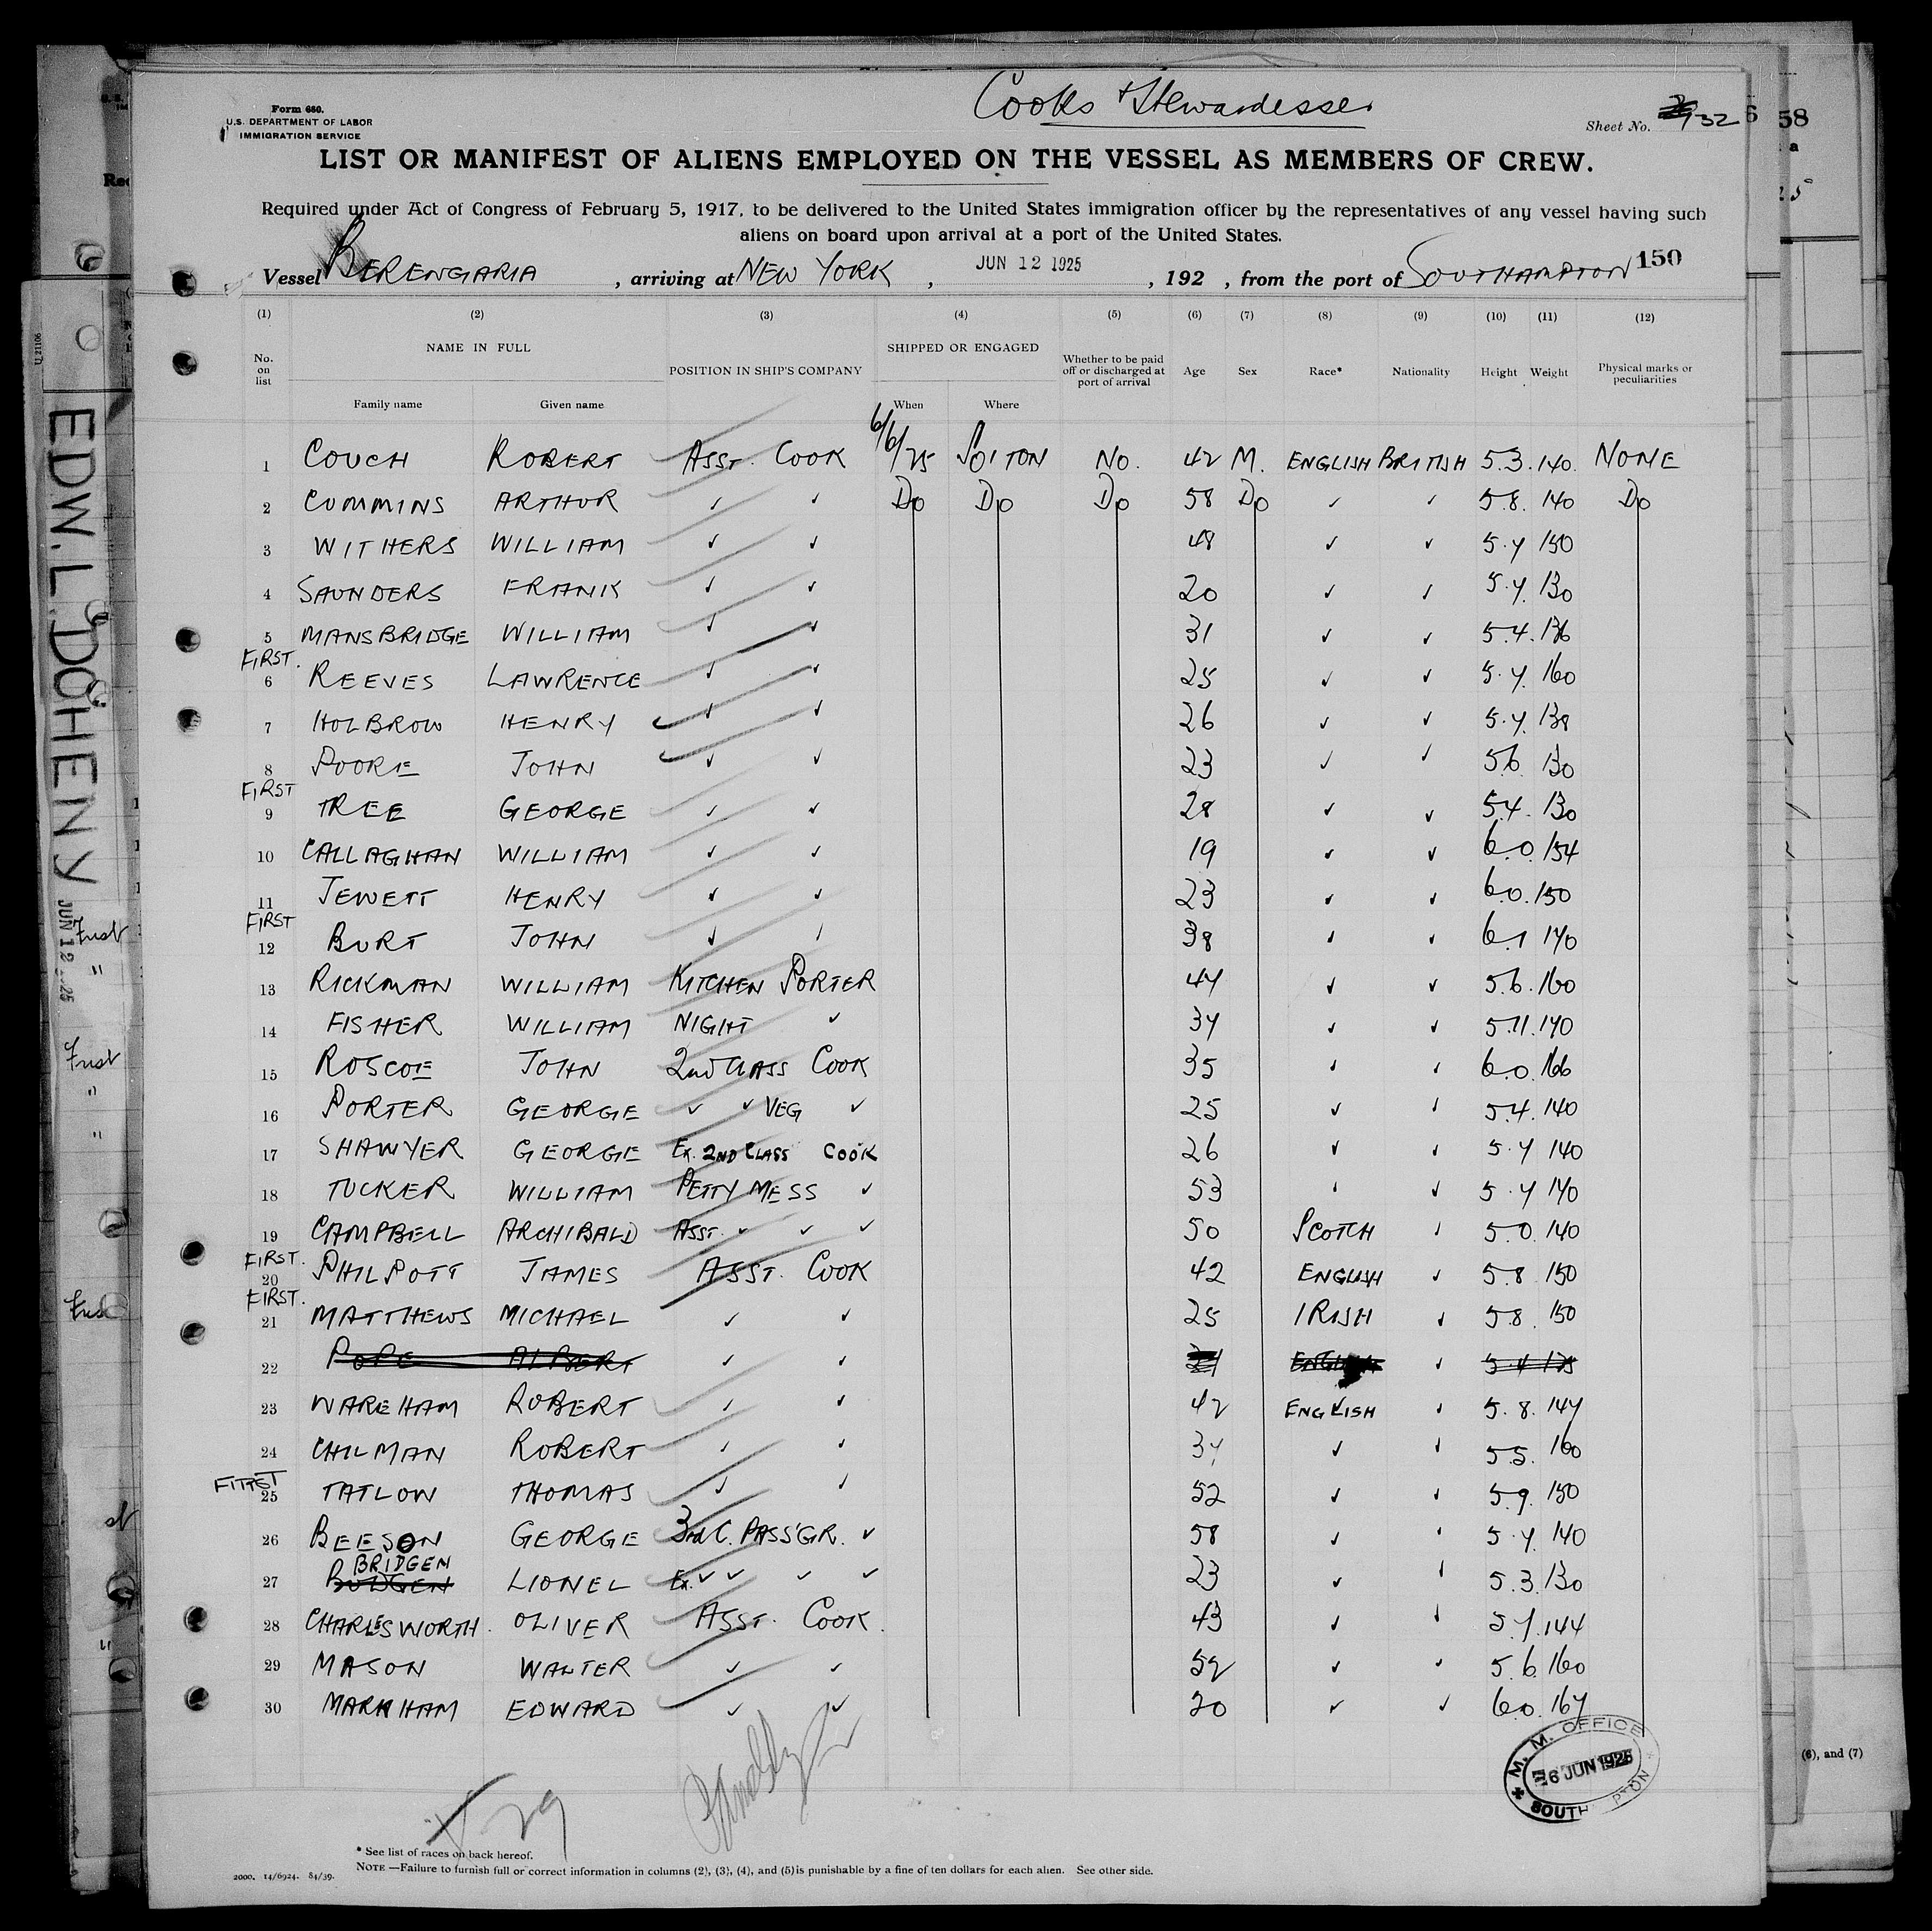 Cooks & Stewardesses
Form 680.
U.S. DEPARTMENT OF LABOR
IMMIGRATION SERVICE
Sheet No. 32
58
LIST OR MANIFEST OF ALIENS EMPLOYED ON THE VESSEL AS MEMBERS OF CREW.
Required under Act of Congress of February 5, 1917, to be delivered to the United States immigration officer by the representatives of any vessel having such
aliens on board upon arrival at a port of the United States.
Vessel BERENGARIA , arriving at NEW YORK , JUN 12 1925 , 192 , from the port of SOUTHAMPTON 150
(1) (2) (3) (4) (5) (6) (7) (8) (9) (10) (11) (12)
No. on list NAME IN FULL POSITION IN SHIP'S COMPANY SHIPPED OR ENGAGED Whether to be paid off or discharged at port of arrival Age Sex Race* Nationality Height Weight Physical marks or peculiarities
Family name Given name When Where
1 COUCH ROBERT ASST. COOK 6/6/25 SO'TON NO. 42 M. ENGLISH BRITISH 5.3. 140. NONE
2 CUMMINS ARTHUR ✓ ✓ DO DO DO 58 DO ✓ ✓ 5.8. 140 DO
3 WITHERS WILLIAM ✓ ✓ 48 ✓ ✓ 5.7 150
4 SAUNDERS FRANK ✓ ✓ 20 ✓ ✓ 5.7. 130
5 MANSBRIDGE WILLIAM ✓ ✓ 31 ✓ ✓ 5.4. 136
FIRST.
6 REEVES LAWRENCE ✓ ✓ 25 ✓ ✓ 5.7. 160
7 HOLBROW HENRY ✓ ✓ 26 ✓ ✓ 5.7 138
8 POORE JOHN ✓ ✓ 23 ✓ ✓ 5.6. 130
FIRST
9 TREE GEORGE ✓ ✓ 28 ✓ ✓ 5.4. 130
10 CALLAGHAN WILLIAM ✓ ✓ 19 ✓ ✓ 6.0. 154
11 JEWETT HENRY ✓ ✓ 23 ✓ ✓ 6.0. 150
FIRST
12 BURT JOHN ✓ ✓ 38 ✓ ✓ 6.1 170
13 RICKMAN WILLIAM KITCHEN PORTER 47 ✓ ✓ 5.6. 160
14 FISHER WILLIAM NIGHT ✓ 37 ✓ ✓ 5.11. 170
15 ROSCOE JOHN 2nd CLASS COOK 35 ✓ ✓ 6.0. 166
16 PORTER GEORGE ✓ ✓ VEG ✓ 25 ✓ ✓ 5.4. 140
17 SHAWYER GEORGE EX. 2ND CLASS COOK 26 ✓ ✓ 5.7 140
18 TUCKER WILLIAM PETTY MESS ✓ 53 ✓ ✓ 5.7 170
19 CAMPBELL ARCHIBALD ASST. ✓ ✓ ✓ 50 SCOTCH ✓ 5.0. 140
FIRST.
20 PHILPOTT JAMES ASST. COOK 42 ENGLISH ✓ 5.8 150
FIRST.
21 MATTHEWS MICHAEL ✓ ✓ 25 IRISH ✓ 5.8. 150
22 POPE ALBERT ✓ ✓ ENGLISH ✓
23 WAREHAM ROBERT ✓ ✓ 42 ENGLISH ✓ 5.8. 147
24 CHILMAN ROBERT ✓ ✓ 37 ✓ ✓ 5.5. 160
FIRST
25 TATLOW THOMAS ✓ ✓ 52 ✓ ✓ 5.9. 150
26 BEESON GEORGE 3rd C. PASS'GR. ✓ 58 ✓ ✓ 5.7. 140
BRIDGEN
27 BUDGEN LIONEL EX. ✓ ✓ ✓ ✓ 23 ✓ ✓ 5.3. 130
28 CHARLESWORTH. OLIVER ASST. COOK. 43 ✓ ✓ 5.7. 144
29 MASON WALTER ✓ ✓ 52 ✓ ✓ 5.6. 160
30 MARKHAM EDWARD ✓ ✓ 20 ✓ ✓ 6.0. 167
M. M. OFFICE
6 JUN 1925
SOUTH PTON
29
(6), and (7)
* See list of races on back hereof.
NOTE —Failure to furnish full or correct information in columns (2), (3), (4), and (5) is punishable by a fine of ten dollars for each alien. See other side.
2000. 14/6924. 84/39.
U 21106
EDW. L. DOHENY
JUN 12 1925
First
"
First
"
"